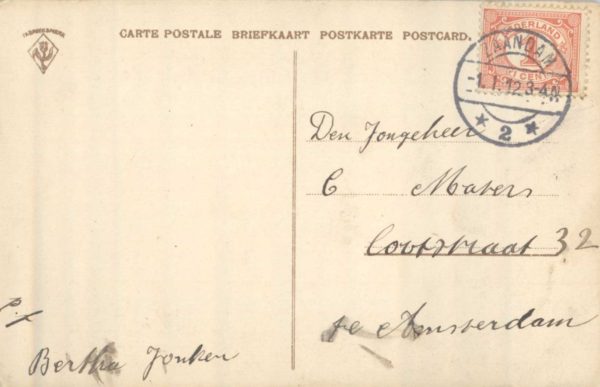 CARTE POSTALE BRIEFKAART POSTKARTE POSTCARD.
NEDERLAND
1
CENT
ZAANDAM
-1.1.12.3-4N
* 2 *
Den Jongeheer
C Maters
Cootstraat 32
te Amsterdam
p.f
Bertha Jonker